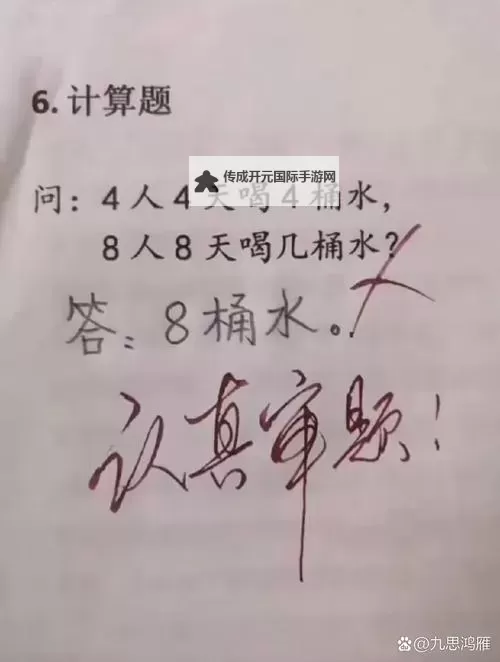 6. 计算题
传成开元国际手游网
问：4人4天喝4桶水，
8人8天喝几桶水？
答：8桶水。
认真审题！
@九思鸿雁